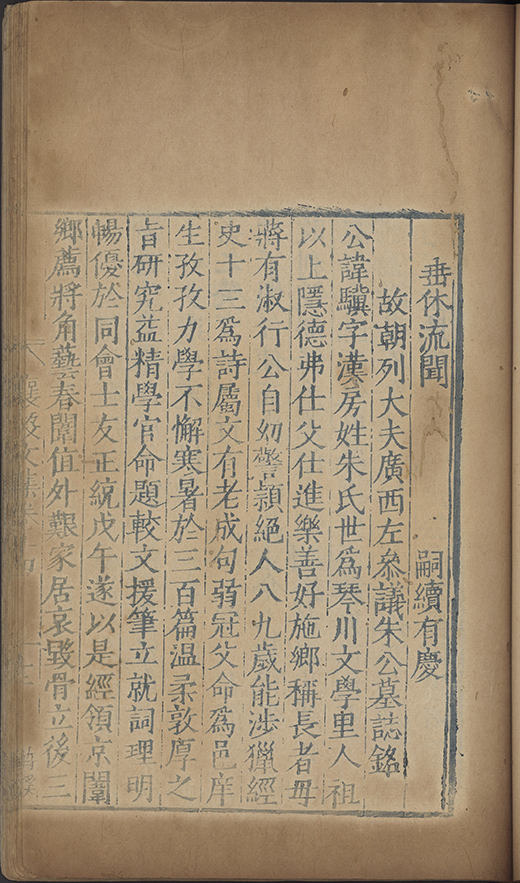 垂休流聞 嗣續有慶
故朝列大夫廣西左參議朱公墓誌銘
公諱驥字漢房姓朱氏世爲琴川文學里人祖
以上隱德弗仕父仕進樂善好施鄉稱長者毋
蔣有淑行公自幼警頴絕人八九歲能涉獵經
史十三爲詩屬文有老成句弱冠父命爲邑庠
生孜孜力學不懈寒暑於三百篇温柔敦厚之
旨研究益精學官命題較文援筆立就詞理明
暢優於同會士友正統戊午遂以是經領京闈
鄉薦將角藝春闈值外艱家居哀毀骨立後三